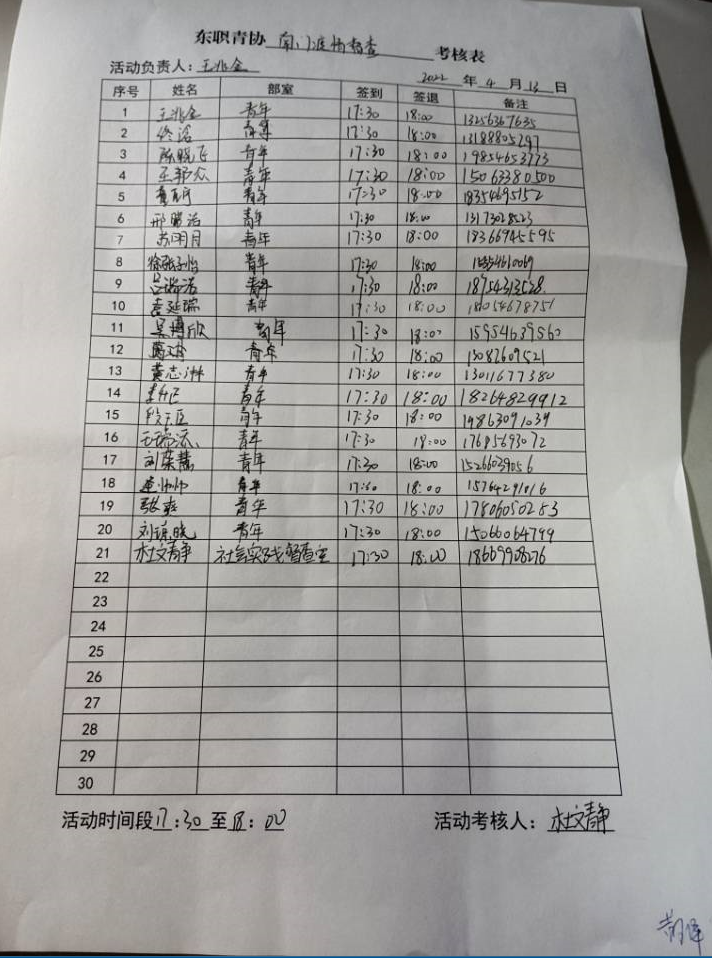 东职青协 南门疫情督查 考核表
活动负责人：王兆全
2022 年 4 月 13 日
序号 姓名 部室 签到 签退 备注
1 王兆全 青年 17:30 18:00 13256367635
2 青年 17:30 18:00 13188805297
3 陈晓飞 青年 17:30 18:00 19854653773
4 青年 17:30 18:00 15063380500
5 青年 17:30 18:00 18354695152
6 邢 青年 17:30 18:00 13173028523
7 苏明月 青年 17:30 18:00 18366945595
8 青年 17:30 18:00
9 吕 青年 17:30 18:00 18754313528
10 李延瑞 青年 17:30 18:00 181054678751
11 吴博欣 青年 17:30 18:00 15954639560
12 青年 17:30 18:00 13082609521
13 黄志 青年 17:30 18:00 13011677380
14 青年 17:30 18:00 18264829912
15 段 青年 17:30 18:00 19863091039
16 王瑞 青年 17:30 18:00 17685693072
17 刘荣慧 青年 17:30 18:00 1526603905 6
18 青年 17:30 18:00 1576429101 6
19 张爽 青年 17:30 18:00 17806050253
20 刘 晓 青年 17:30 18:00 15066064799
21 杜文静 社会实践督查室 17:30 18:00 18669908276
22
23
24
25
26
27
28
29
30
活动时间段17:30至18:00 活动考核人：杜文静